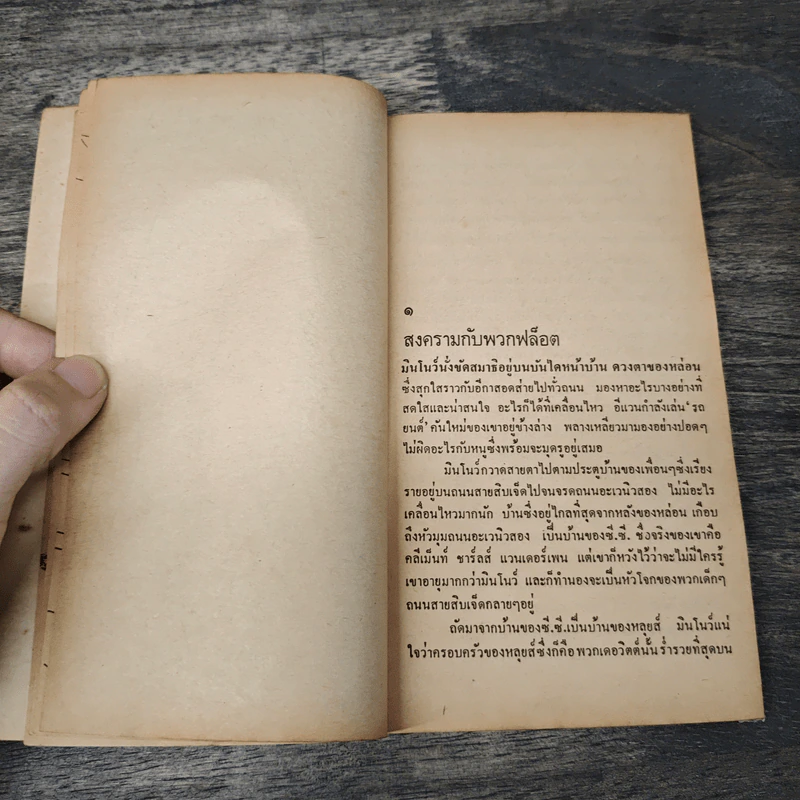 ๑
สงครามกับพวกฟล็อต
มินโนว์นั่งขัดสมาธิอยู่บนบันไดหน้าบ้าน ดวงตาของหล่อน
ซึ่งสุกใสราวกับอีกาสอดส่ายไปทั่วถนน มองหาอะไรบางอย่างที่
สดใสและน่าสนใจ อะไรก็ได้ที่เคลื่อนไหว อีแวนกำลังเล่น‘รถ
ยนต์’คันใหม่ของเขาอยู่ข้างล่าง พลางเหลียวมามองอย่างปอดๆ
ไม่ผิดอะไรกับหนูซึ่งพร้อมจะมุดรูอยู่เสมอ
มินโนว์กวาดสายตาไปตามประตูบ้านของเพื่อนๆซึ่งเรียง
รายอยู่บนถนนสายสิบเจ็ดไปจนจรดถนนอะเวนิวสอง ไม่มีอะไร
เคลื่อนไหวมากนัก บ้านซึ่งอยู่ไกลที่สุดจากหลังของหล่อน เกือบ
ถึงหัวมุมถนนอะเวนิวสอง เป็นบ้านของซี.ซี. ชื่อจริงของเขาคือ
คลีเม็นท์ ชาร์ลส์ แวนเดอร์เพน แต่เขาก็หวังไว้ว่าจะไม่มีใครรู้
เขาอายุมากกว่ามินโนว์ และก็ทำนองจะเป็นหัวโจกของพวกเด็กๆ
ถนนสายสิบเจ็ดกลายๆอยู่
ถัดมาจากบ้านของซี.ซี.เป็นบ้านของหลุยส์ มินโนว์แน่
ใจว่าครอบครัวของหลุยส์ซึ่งก็คือพวกเดอวิตต์นั้นร่ำรวยที่สุดบน